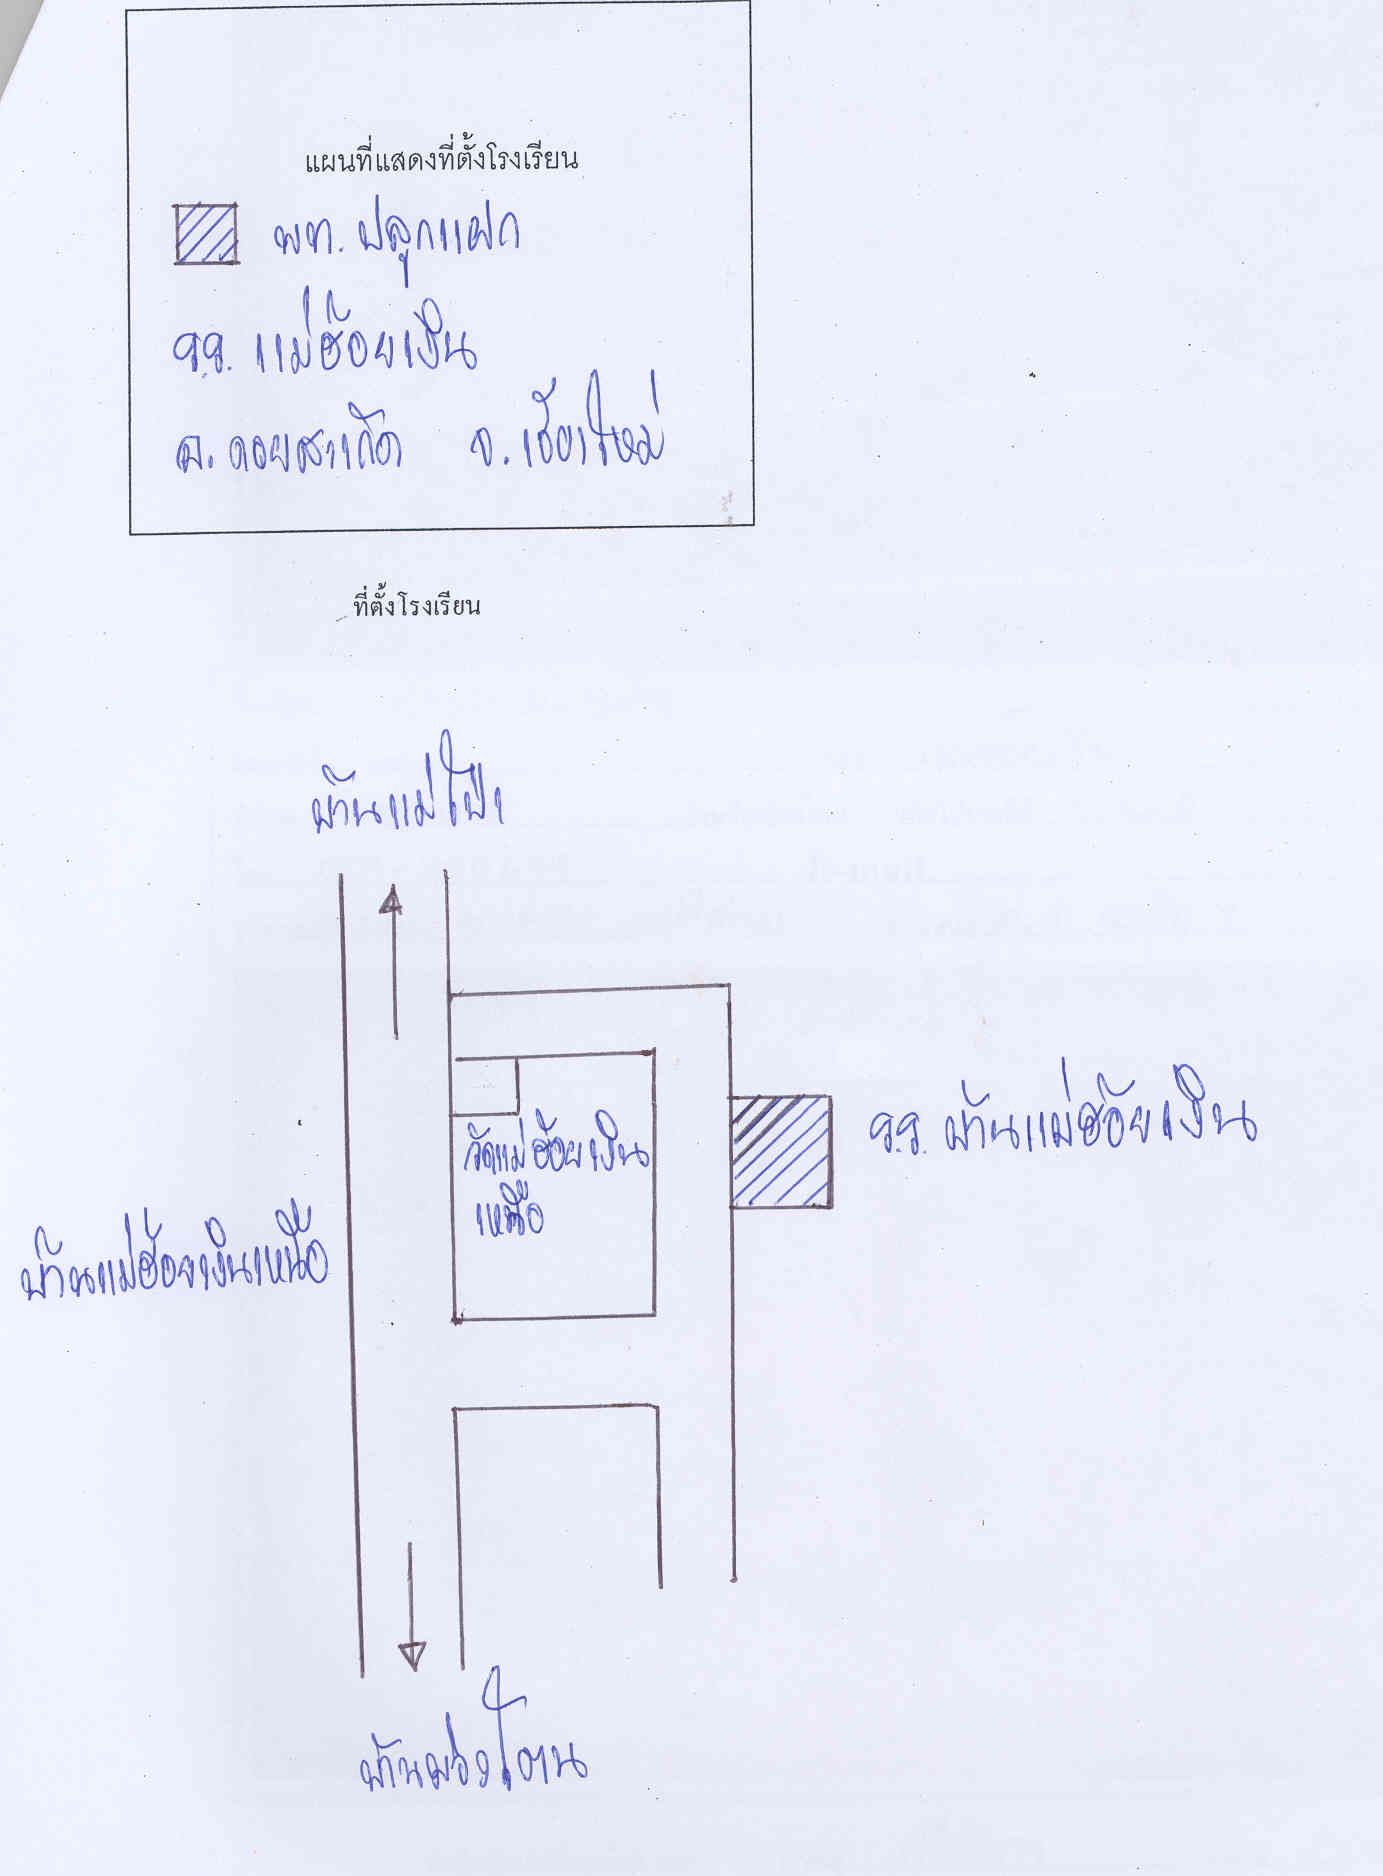 แผนที่แสดงที่ตั้งโรงเรียน
พท. ปลูกแฝก
รร. แม่ฮ้อยเงิน
อ. ดอยสะเก็ด จ. เชียงใหม่
ที่ตั้งโรงเรียน
บ้านแม่โป่ง
วัดแม่ฮ้อยเงิน
เหนือ
รร. บ้านแม่ฮ้อยเงิน
บ้านแม่ฮ้อยเงินเหนือ
บ้านม่วงโตน